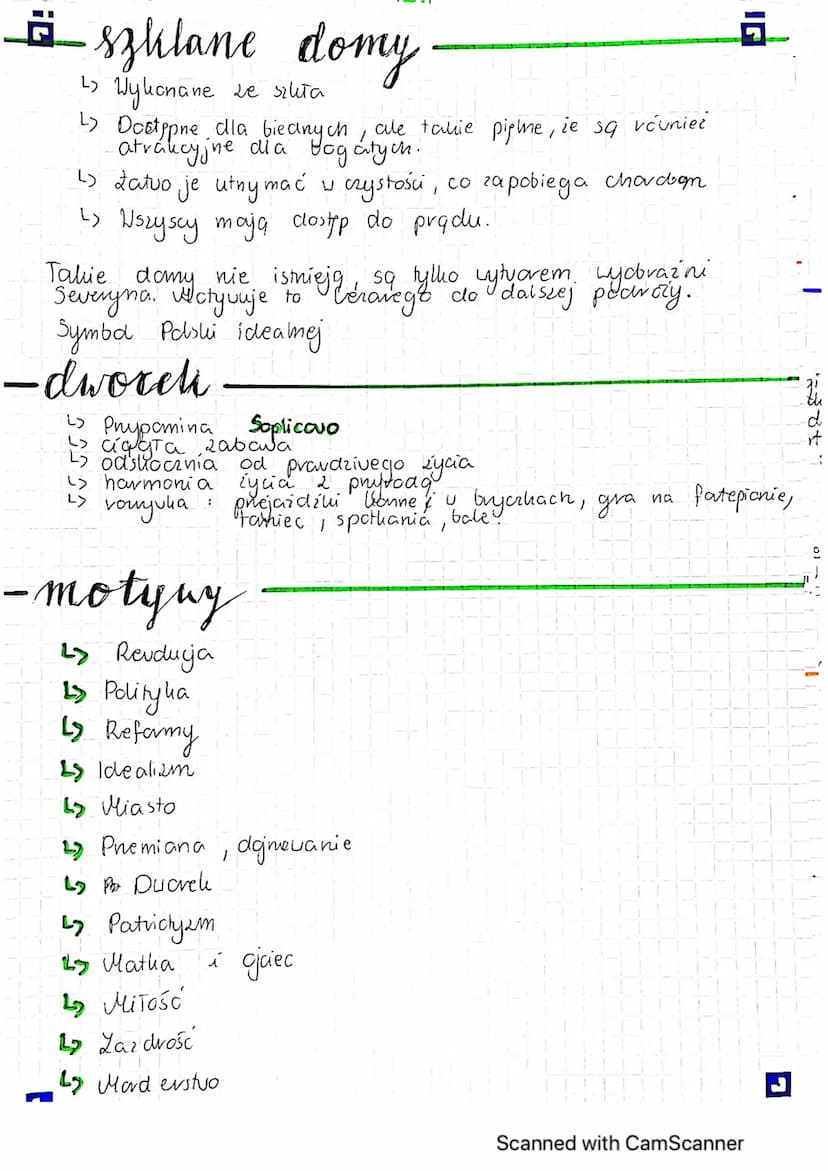 szklane domy
↳ Wykonane ze szkła
↳ Dostępne dla biednych, ale takie piękne, że są również
atrakcyjne dla bogatych.
↳ Łatwo je utrzymać w czystości, co zapobiega chorobom
↳ Wszyscy mają dostęp do prądu.
Takie domy nie istnieją, są tylko wytworem wyobraźni
Seweryna. Motywuje to Cezarego do dalszej podróży.
Symbol Polski idealnej
dworek
↳ Przypomina Soplicowo
↳ ciągła zabawa
↳ odskocznia od prawdziwego życia
↳ harmonia życia z przyrodą
↳ rozrywka : przejażdżki konne i w bryczkach, gra na fortepianie,
taniec, spotkania, bale
motywy
↳ Rewolucja
↳ Polityka
↳ Reformy
↳ Idealizm
↳ Miasto
↳ Przemiana, dojrzewanie
↳ Dworek
↳ Patriotyzm
↳ Matka i ojciec
↳ Miłość
↳ Zazdrość
↳ Morderstwo
Scanned with CamScanner